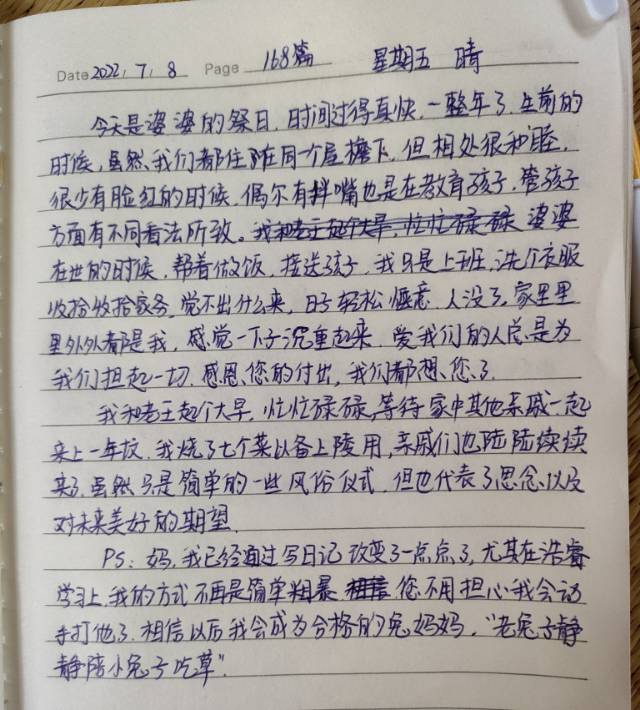 Date 2022 / 7 / 8 Page 168篇 星期五 晴
今天是婆婆的祭日，时间过得真快，一整年了，生前的
时候，虽然我们都住在同一个屋檐下，但相处很和睦，
很少有脸红的时候，偶尔有拌嘴也是在教育孩子，管孩子
方面有不同看法所致。我和老王起个大早，忙忙碌碌 婆婆
在世的时候，帮着做饭，接送孩子，我只是上班，洗个衣服
收拾收拾家务，觉不出什么来，日子轻松惬意，人没了，家里里
里外外都是我，感觉一下子沉重起来，爱我们的人总是为
我们担起一切，感恩您的付出，我们都想您了。
我和老王起个大早，忙忙碌碌，等待家中其他亲戚一起
来上一年坟，我烧了七个菜以备上陵用，亲戚们也陆陆续续
来了，虽然只是简单的一些风俗仪式，但也代表了思念以及
对未来美好的期望。
PS：妈，我已经通过写日记改变了一点点了，尤其在浩睿
学习上，我的方式不再是简单粗暴 相信 您不用担心我会动
手打他了，相信以后我会成为合格的兔妈妈，“老兔子静
静陪小兔子吃草”.